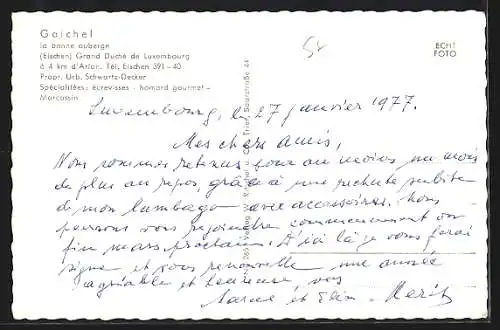 Gaichel
la bonne auberge
(Eischen) Grand Duché de Luxembourg
à 4 km d'Arlon. Tél. Eischen 391-40
Propr. Urb. Schwartz-Decker
Spécialitées: écrevisses - homard gourmet -
Marcassin
ECHT
FOTO
Luxembourg, le 27 janvier 1977.
Mes chers amis,
Nous sommes retenus pour au moins un mois
de plus au repos, grâce à une rechute subite
de mon lumbago avec accessoires. Nous
pensons vous rejoindre commencement ou
fin mars prochain. D'ici là je vous ferai
signe et vous renouvelle une année
agréable et heureuse, vos
et